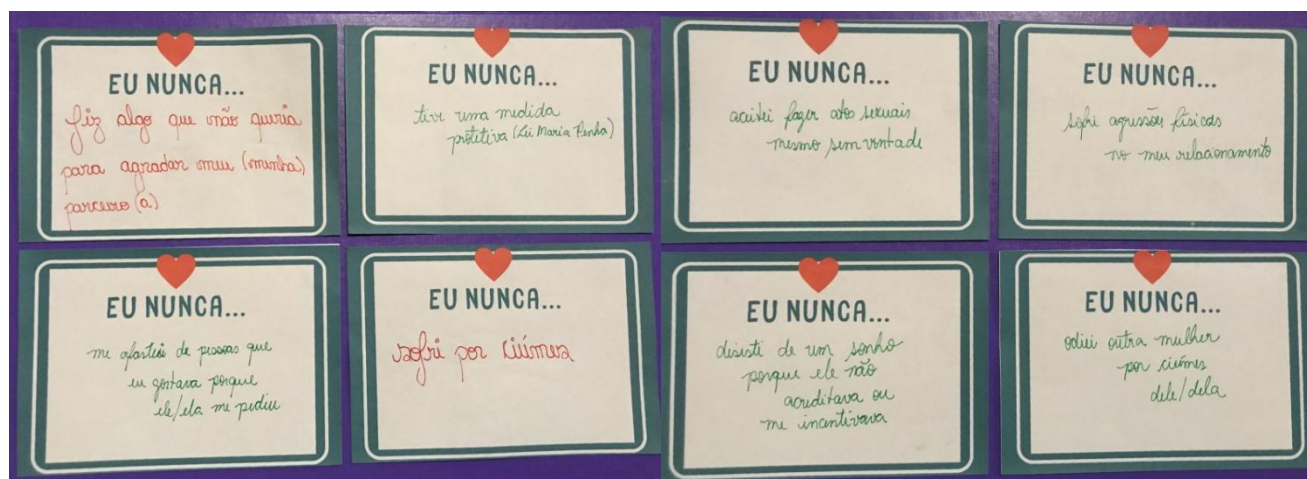 EU NUNCA...
fiz algo que não queria
para agradar meu (minha)
parceiro (a)
EU NUNCA...
tive uma medida
protetiva (Lei Maria Penha)
EU NUNCA...
aceitei fazer atos sexuais
mesmo sem vontade
EU NUNCA...
sofri agressões físicas
no meu relacionamento
EU NUNCA...
me afastei de pessoas que
eu gostava porque
ele/ela me pediu
EU NUNCA...
sofri por ciúmes
EU NUNCA...
disisti de um sonho
porque ele não
acreditava ou
me incentivava
EU NUNCA...
odiei outra mulher
por ciúmes
dele/dela